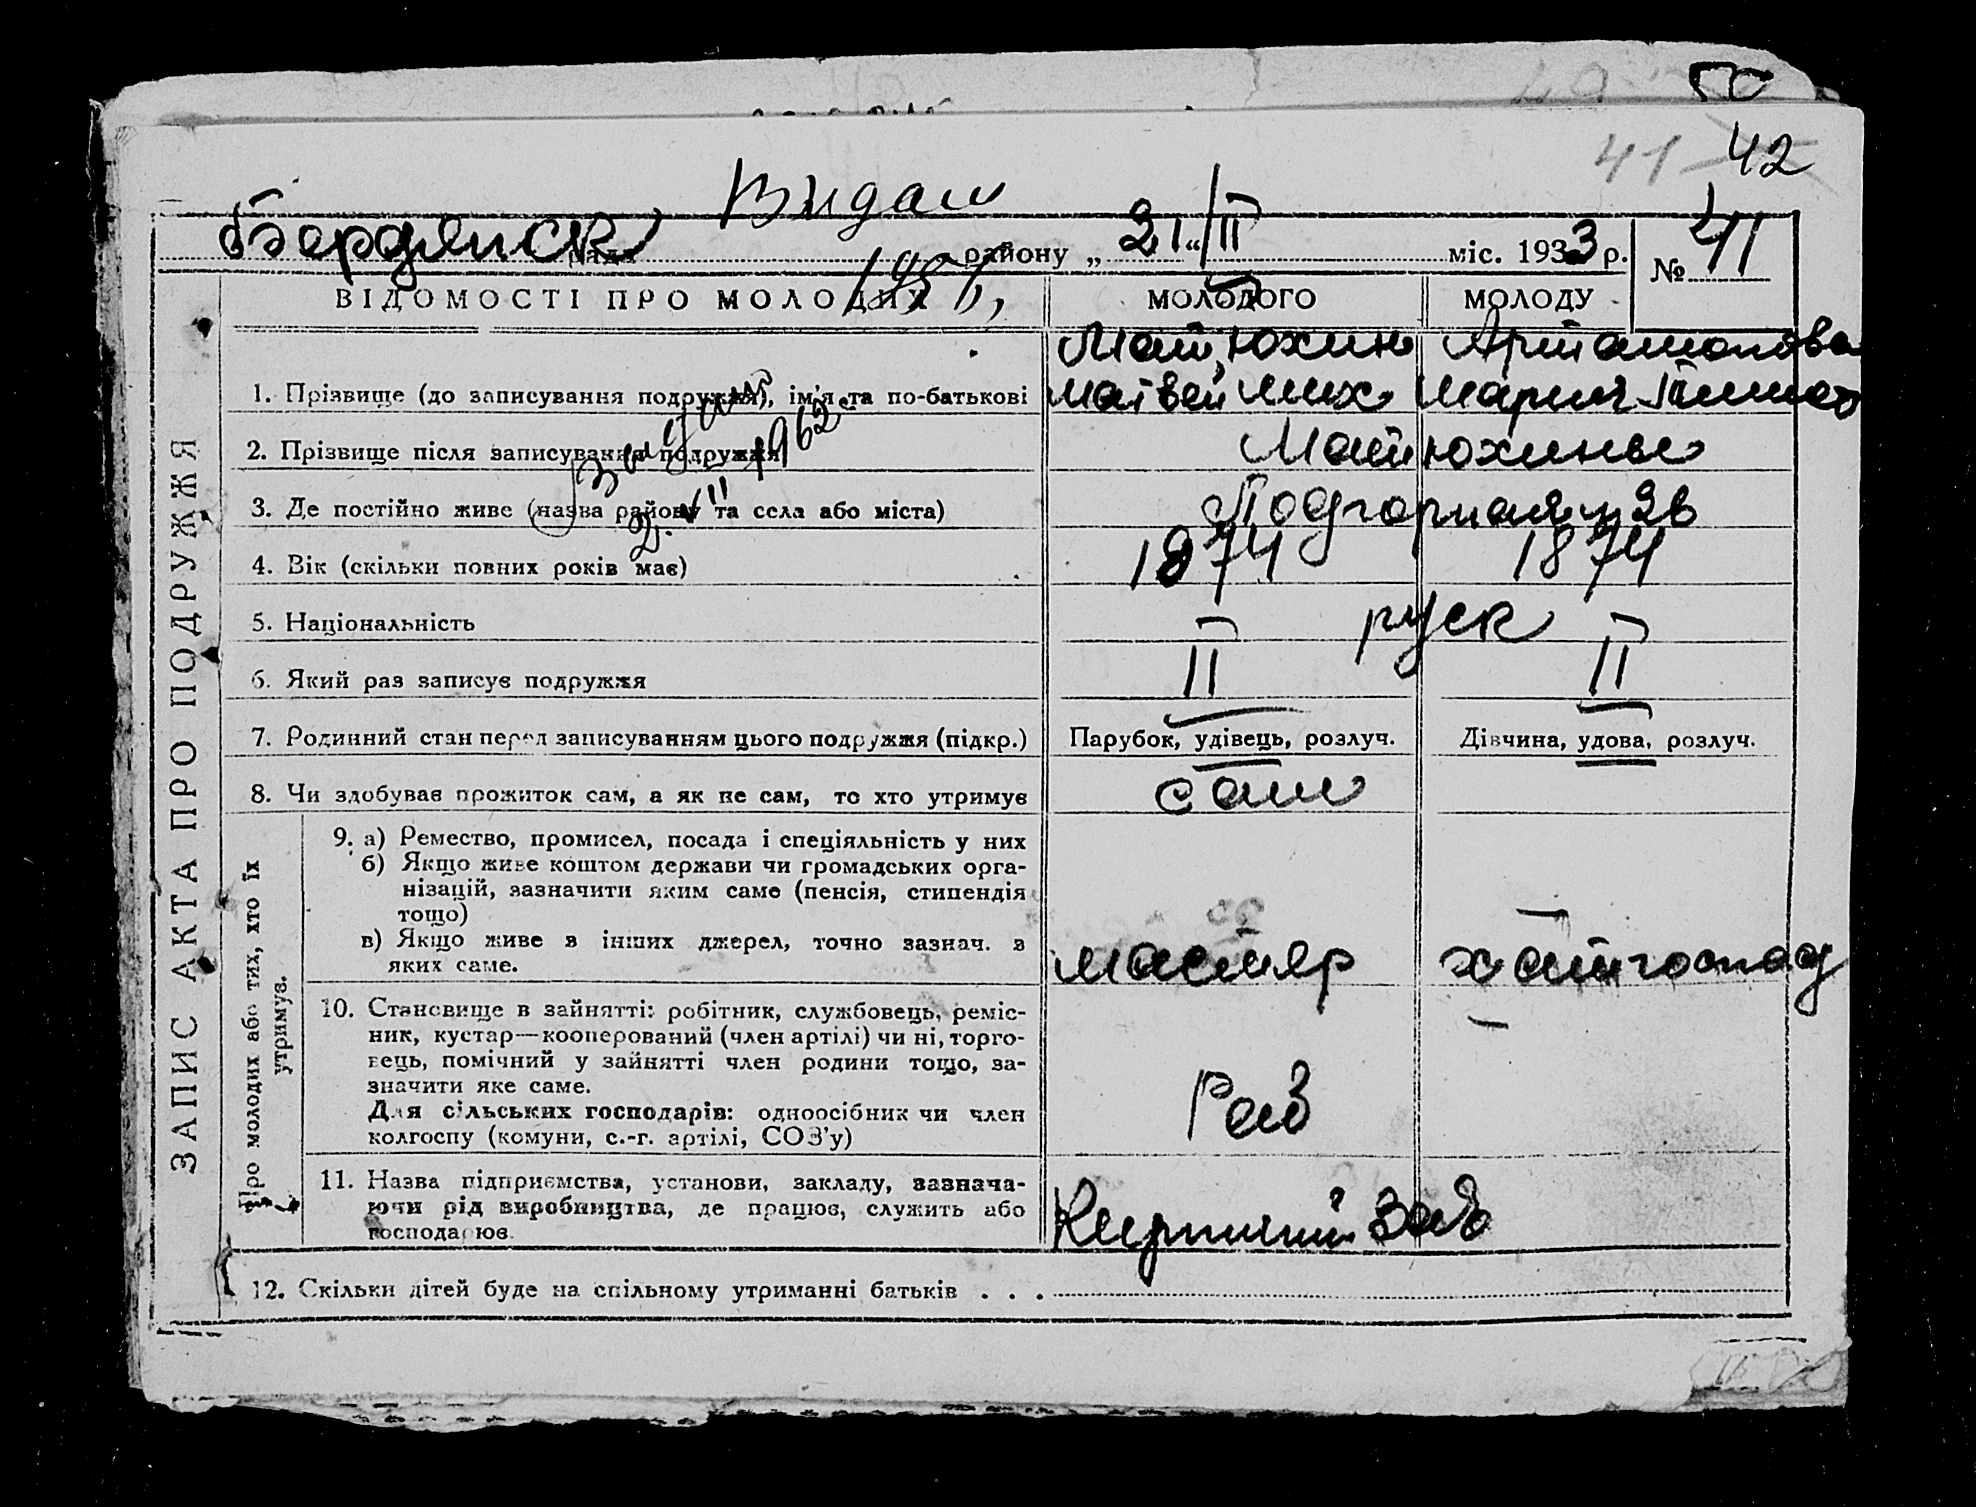 50
41 42
Видан
Бердянск рада району „21“/II міс. 1933 р. № 41
ВІДОМОСТІ ПРО МОЛОДИХ МОЛОДОГО МОЛОДУ
Матюхин Артамонова
1. Прізвище (до записування подружжя), ім'я та по-батькові Матвей Мих Мария Тимоф
2. Прізвище після записування подружжя Матюхины
3. Де постійно живе (назва району та села або міста) Подгорная
4. Вік (скільки повних років має) 1874 1874
5. Національність руск
6. Який раз записує подружжя II II
7. Родинний стан перед записуванням цього подружжя (підкр.) Парубок, удівець, розлуч. Дівчина, удова, розлуч.
8. Чи здобуває прожиток сам, а як не сам, то хто утримує сам
9. а) Ремество, промисел, посада і спеціяльність у них
б) Якщо живе коштом держави чи громадських орга-
нізацій, зазначити яким саме (пенсія, стипендія
тощо)
в) Якщо живе в інших джерел, точно зазнач. з
яких саме. маляр хатгоспод
10. Становище в зайнятті: робітник, службовець, реміс-
ник, кустар—кооперований (член артілі) чи ні, торго-
вець, помічний у зайнятті член родини тощо, за-
значити яке саме.
Для сільських господарів: одноосібник чи член
колгоспу (комуни, с.-г. артілі, СОЗ'у) Раб
11. Назва підприємства, установи, закладу, зазнача-
ючи рід виробництва, де працює, служить або
господарює. Кирпичний Зав
12. Скільки дітей буде на спільному утриманні батьків . . .
ЗАПИС АКТА ПРО ПОДРУЖЖЯ
Про молодих або тих, хто їх
утримує.
1962